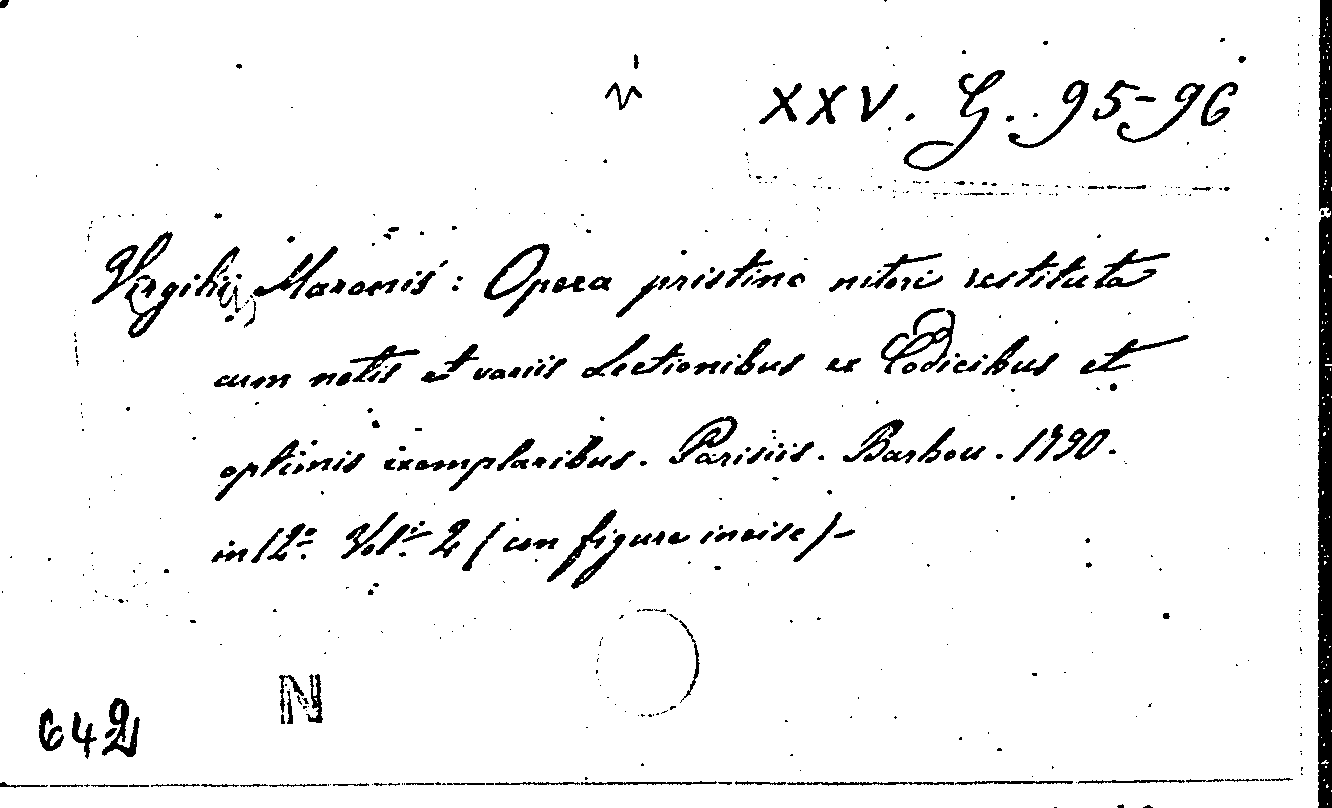 XXV. G. 95-96
Virgilii Maronis: Opera pristino nitori restituta
cum notis et variis Lectionibus ex Codicibus et
optimis exemplaribus. Parisiis. Barbou. 1790.
in 12º. Vol.i 2 (con figure incise)-
N
642